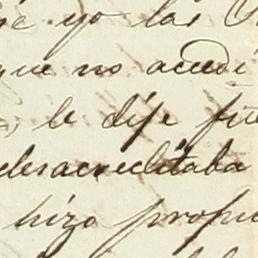 yo las
que no accedi
, le dije fue
desacreditaba
hizo propu